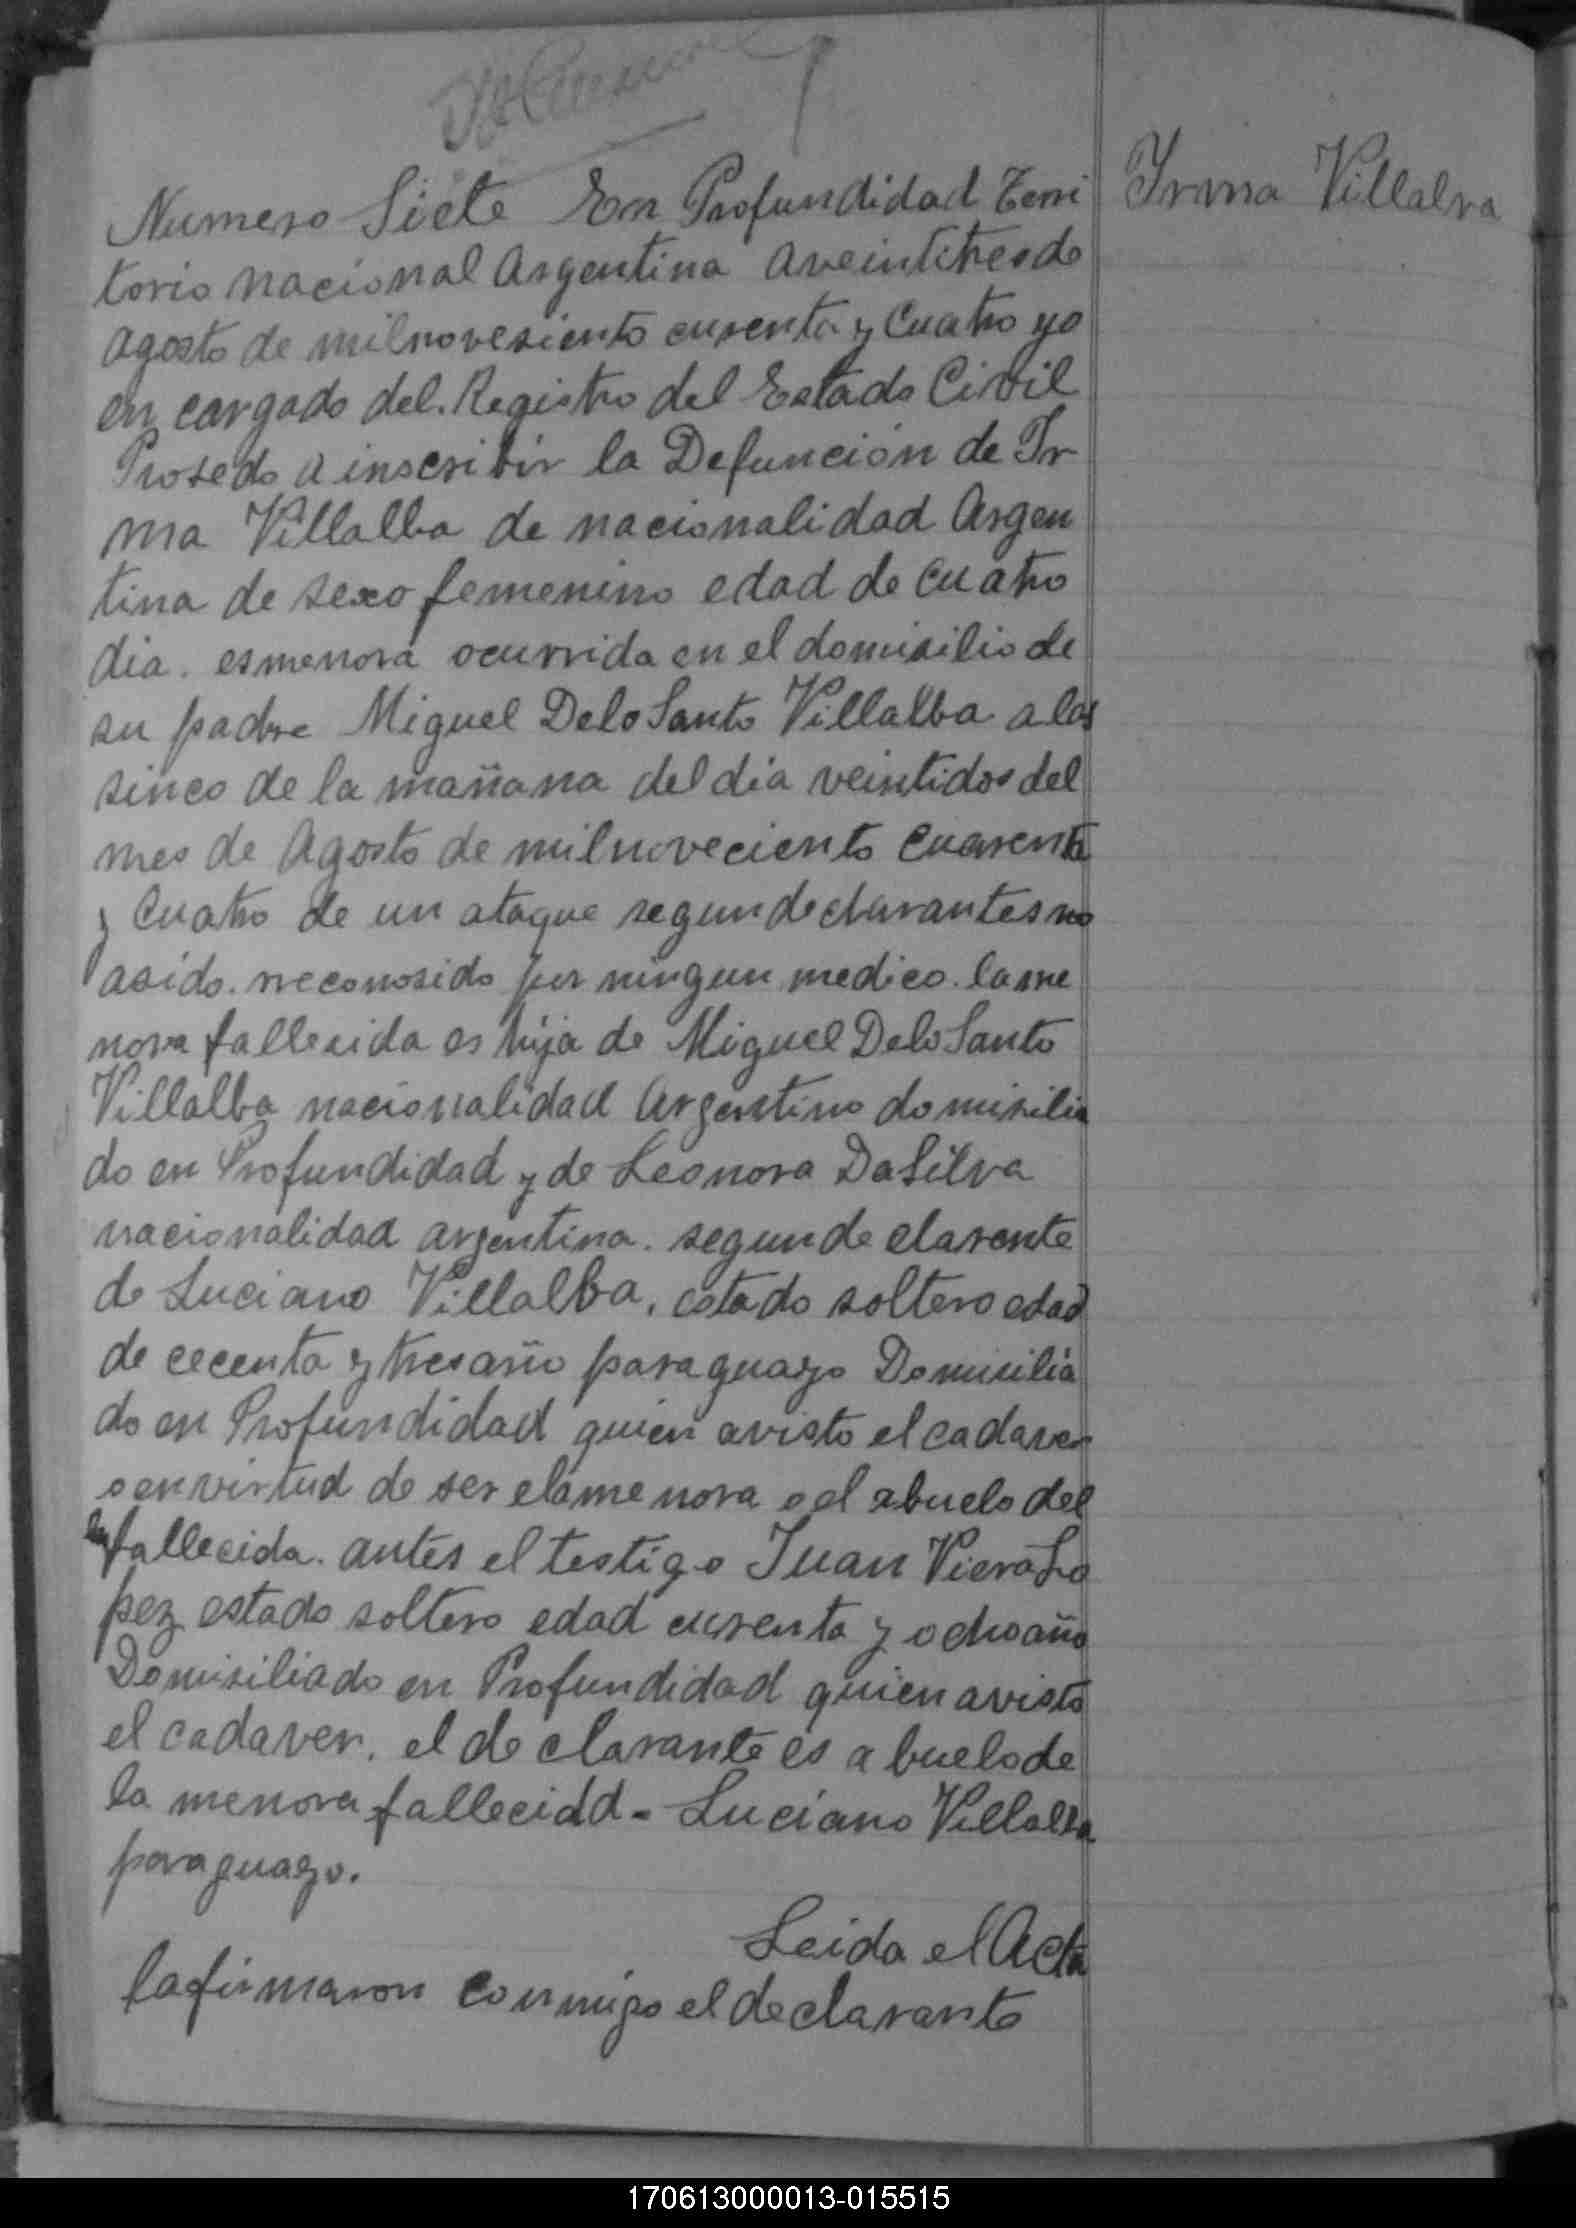 Irma Villalva
Numero Siete En Profundidad Terri
torio nacional Argentina aveintitresde
Agosto de milnovesiento curenta y Cuatro yo
en cargado del. Registro del Estado Civil
Prosedo a inscribir la Defunción de Ir
ma Villalba de nacionalidad Argen
tina de sexo femenino edad de cuatro
dia. esmenora ocurrida en el domisilio de
su padre Miguel Delo Santo Villalba a las
sinco de la mañana del dia veintidos del
mes de Agosto de milnoveciento cuarenta
y Cuatro de un ataque segun declarantes no
asido. reconosido por ningun medico. la me
nora fallesida es hija de Miguel Delo Santo
Villalba nacionalidad Argentino domisilia
do en Profundidad y de Leonora DaSilva
nacionalidad argentina. segun de clarente
de Luciano Villalba. estado soltero edad
de cecenta y tresaño paraguayo Domisilia
do en Profundidad quien avisto el cadaver
o en virtud de ser elamenora o el abuelo del
la fallecida. antes el testigo Juan Viera Lo
pez estado soltero edad curenta y ochoaño
Domisiliado en Profundidad quien avisto
el cadaver. el de clarante es a buelo de
la menora fallecidd - Luciano Villalba
paraguayo.
Leida el Acta
lafirmaron conmigo el declarante
170613000013-015515